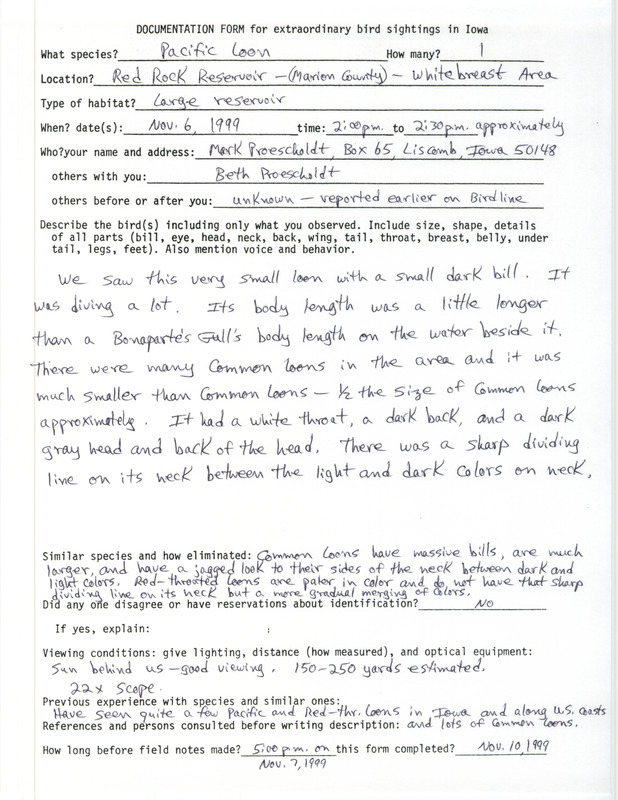 DOCUMENTATION FORM for extraordinary bird sightings in Iowa
What species? Pacific Loon How many? 1
Location? Red Rock Reservoir - (Marion County) - Whitebreast Area
Type of habitat? Large reservoir
When? date(s): Nov. 6, 1999 time: 2:00 p.m. to 2:30 p.m. approximately
Who?your name and address: Mark Proescholdt, Box 65, Liscomb, Iowa 50148
others with you: Beth Proescholdt
others before or after you: unknown - reported earlier on Birdline
Describe the bird(s) including only what you observed. Include size, shape, details
of all parts (bill, eye, head, neck, back, wing, tail, throat, breast, belly, under
tail, legs, feet). Also mention voice and behavior.
We saw this very small loon with a small dark bill. It
was diving a lot. Its body length was a little longer
than a Bonaparte's Gull's body length on the water beside it.
There were many Common Loons in the area and it was
much smaller than Common Loons - ½ the size of Common Loons
approximately. It had a white throat, a dark back, and a dark
gray head and back of the head. There was a sharp dividing
line on its neck between the light and dark colors on neck.
Similar species and how eliminated: Common Loons have massive bills, are much
larger, and have a jagged look to their sides of the neck between dark and
light colors. Red-throated Loons are paler in color and do not have that sharp
dividing line on its neck but a more gradual merging of colors.
Did any one disagree or have reservations about identification? NO
If yes, explain:
Viewing conditions: give lighting, distance (how measured), and optical equipment:
Sun behind us - good viewing. 150-250 yards estimated.
22x scope.
Previous experience with species and similar ones:
Have seen quite a few Pacific and Red-thr. Loons in Iowa and along U.S. coasts
References and persons consulted before writing description: and lots of Common Loons.
How long before field notes made? 5:00 p.m. on this form completed? Nov. 10, 1999
Nov. 7, 1999